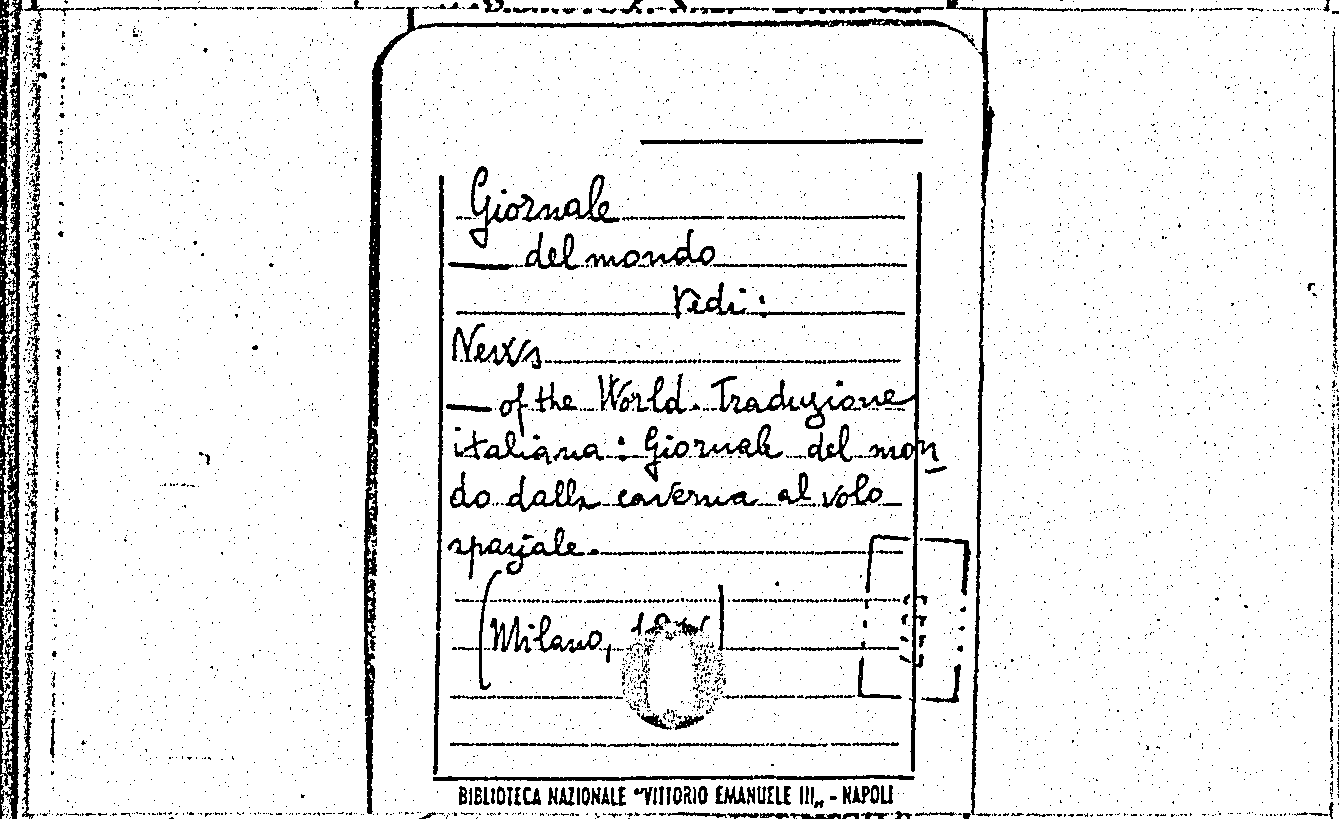 Giornale
— del mondo
Vedi:
News
— of the World. Traduzione
italiana: Giornale del mon
do dalla caverna al volo
spaziale.
(Milano,
BIBLIOTECA NAZIONALE "VITTORIO EMANUELE III„ - NAPOLI